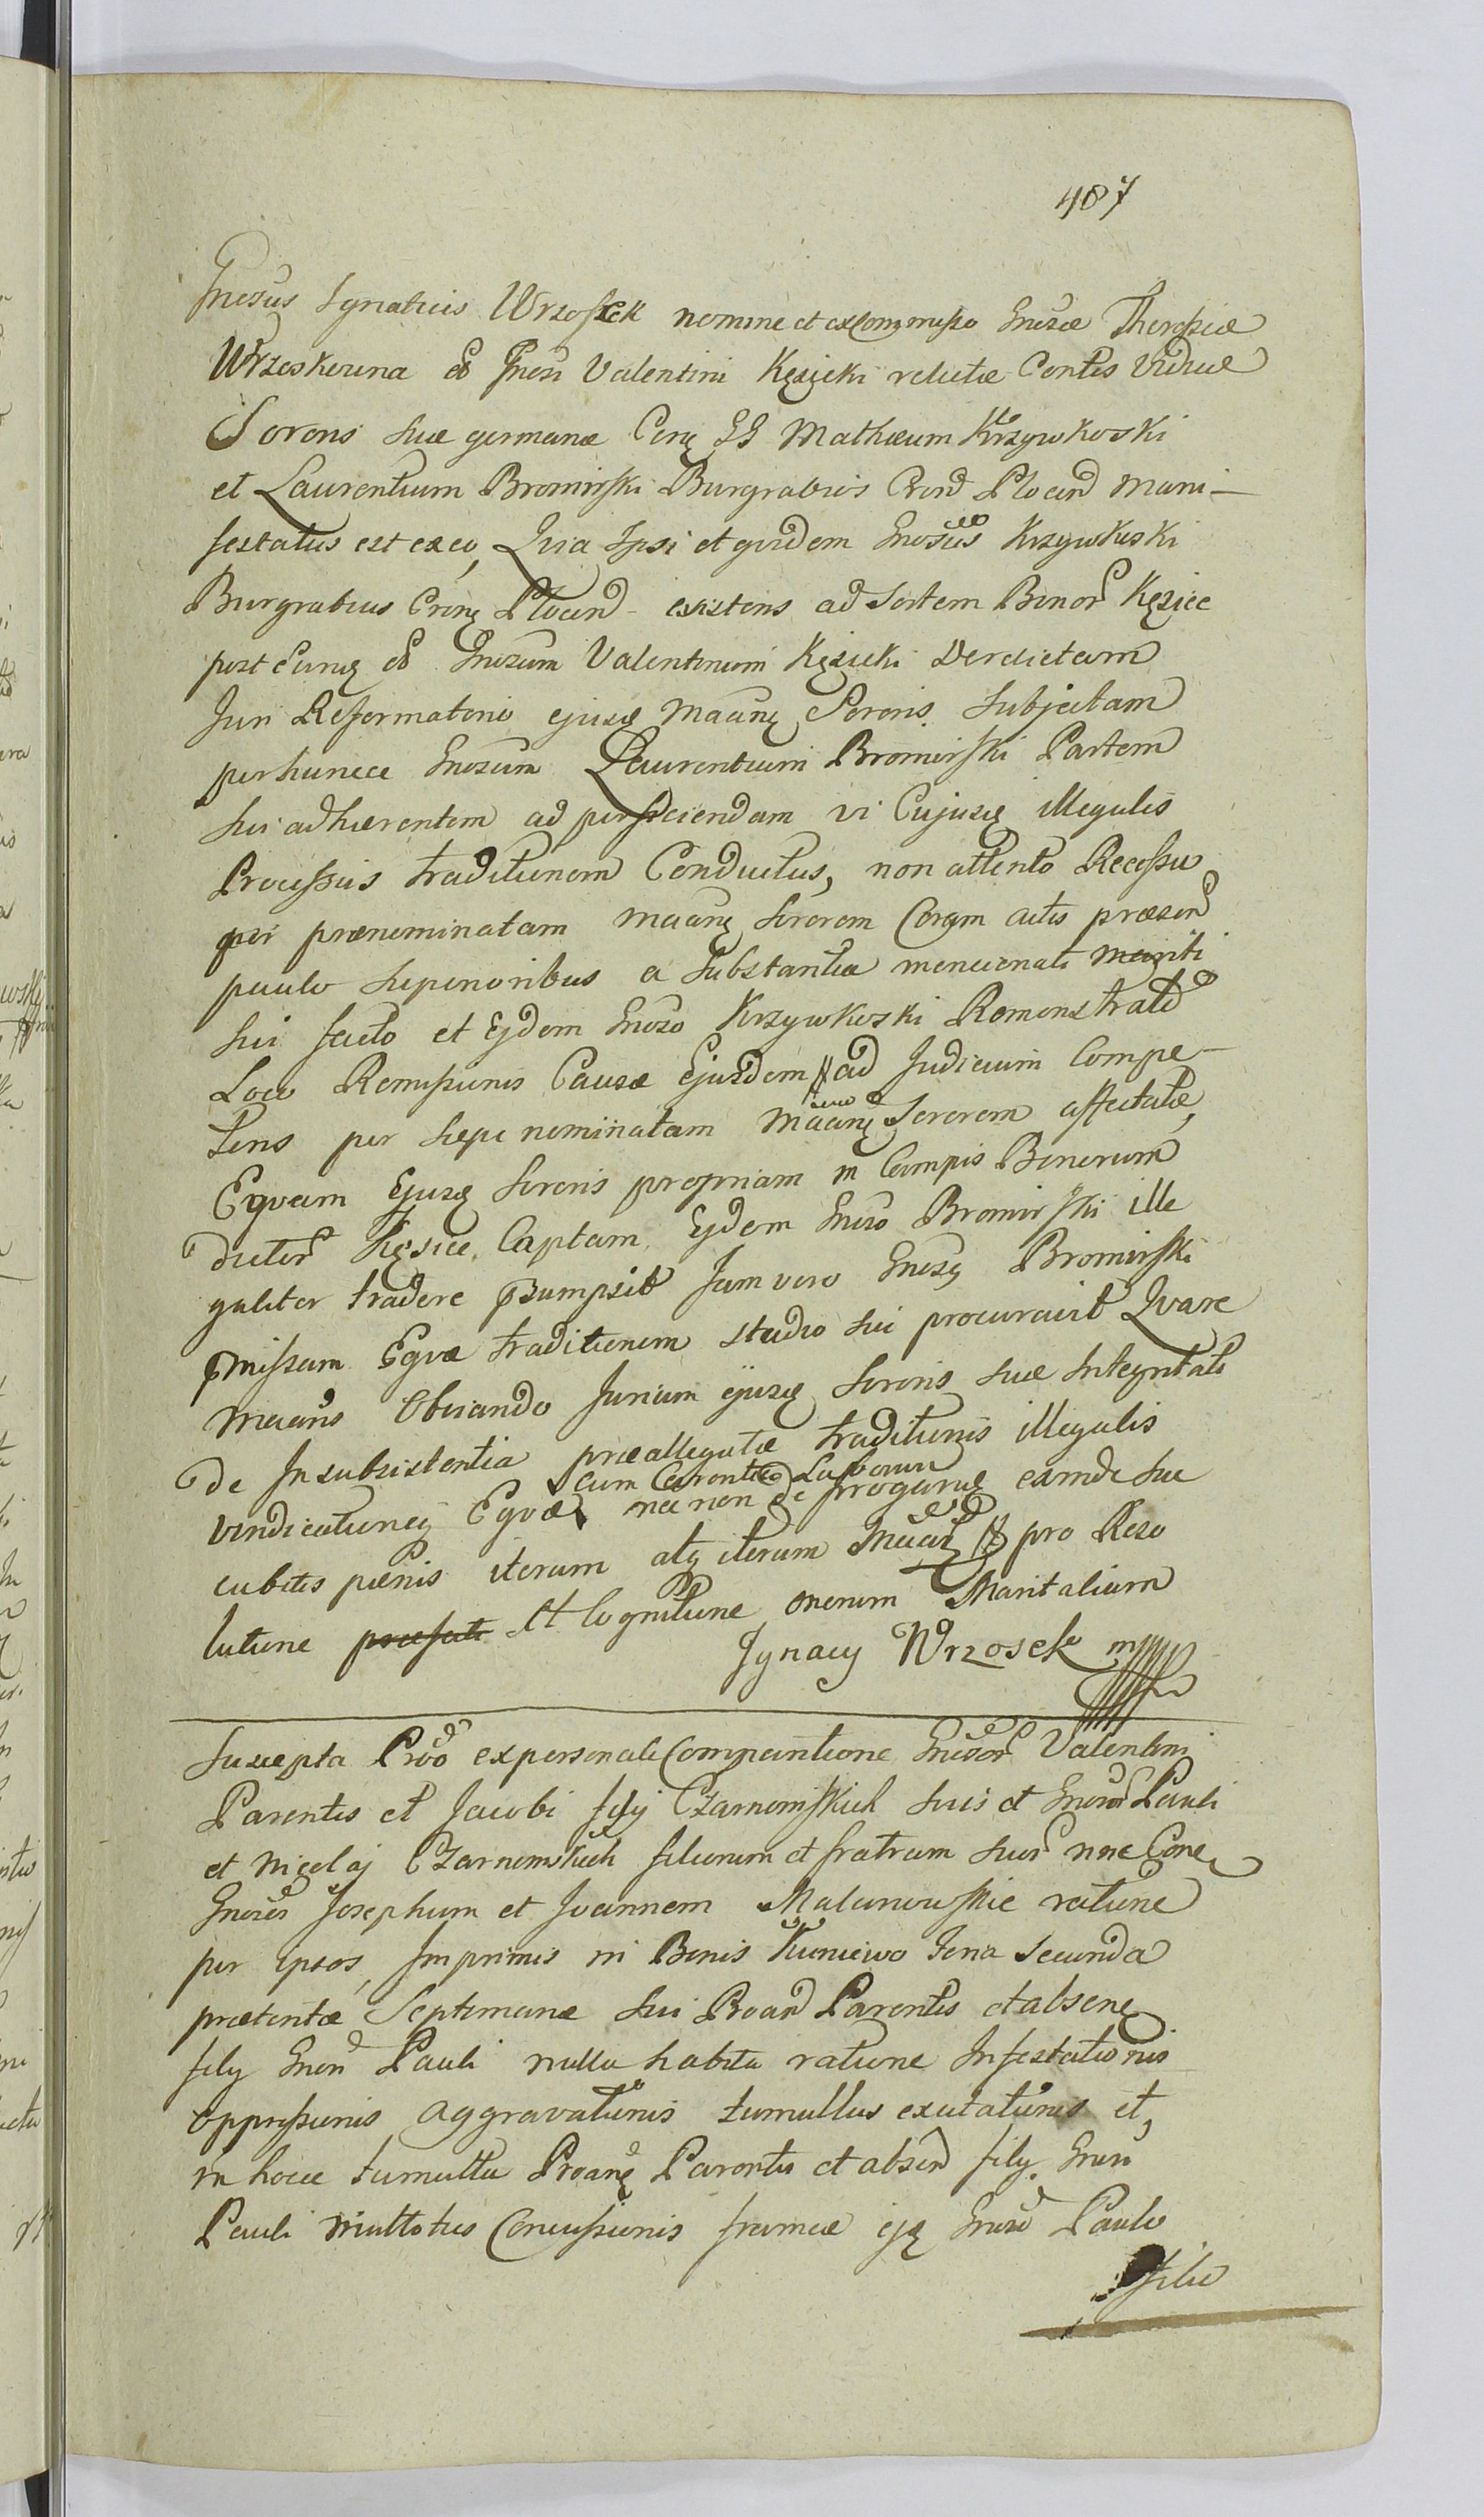 487
Gnosus Ignatius Wrzosek nomine et ex Commisso Gnosæ Theresiæ
Wrzoskowna Gnosi Valentini Kęsicki relictæ Contis Viduæ
Sororis suæ germanæ Cong GG Mathæum Krzywkoski
et Laurentium Bromirski Burgrabios Crend Plocen Mani-
festatus est ex eo, Quia Ipsi et quidem Gnosus Krzywkoski
Burgrabius Plocen existens ad Sortem Bonor Kęsice
post Gnosum Valentinum Kęsicki Derelictam
Juri Reformatorio ejusq Sororis Subjectam
per huncce Gnosum Laurentium Bromirski Partem
sui adhærentem ad perficiendam vi Cujusq illegalis
Processus traditionem Conductus, non attento Recessu
per prænominatam Maang Sororem Coram actis præsen
paulo superioribus a Substantia mencionati mariti
sui facto et Ejdem Gnoso Krzywkoski Remonstrato
Loco Remissionis Causæ Ejusdem ad Judicium Compe-
tens per sæpe nominatam Maang Sororem affectatæ,
Equam Ejusq Sororis propriam in Campis Bonorum
dictor Kęsice Captam Ejdem Gnoso Bromirski ille
galiter tradere psumpsit Jam vero Gnosg Bromirski
pmissam Equæ traditionem studio sui procuravit Quare
Maans Obviando Jurium ejusq Sororis suæ Integritati
De Insubsistentia præallegatæ traditionis illegalis
cum Carentia Laborum
vindicationeq Equæ nec non de eamde suc
cubitis pœnis iterum atq iterum pro Reso
lutione præfati et Cognitione onerum Maritalium
Ignacy Wrzosek mpp
Suscepta Prō ex personali Comparitione Gnosor Valentini
Parentis et Jacobi filij Czarnomskich suis et Gnosor Pauli
et Nicolaj Czarnomskich filiorum et fratrum suor nne Cone
Gnosos Josephum et Joannem Malanowskie ratione
per ipsos, Imprimis in Bonis Kuniewo feria Secunda
prætentæ Septimanæ sui Parentis et absen
filij Gnosi Pauli nulla habita ratione Infestationis
oppressionis aggravationis tumultus excitationis et,
in hocce tumultu Parentis et absen filij Gnosi
Pauli multotus Concussionis frameæ Gnoso Paulo
filio